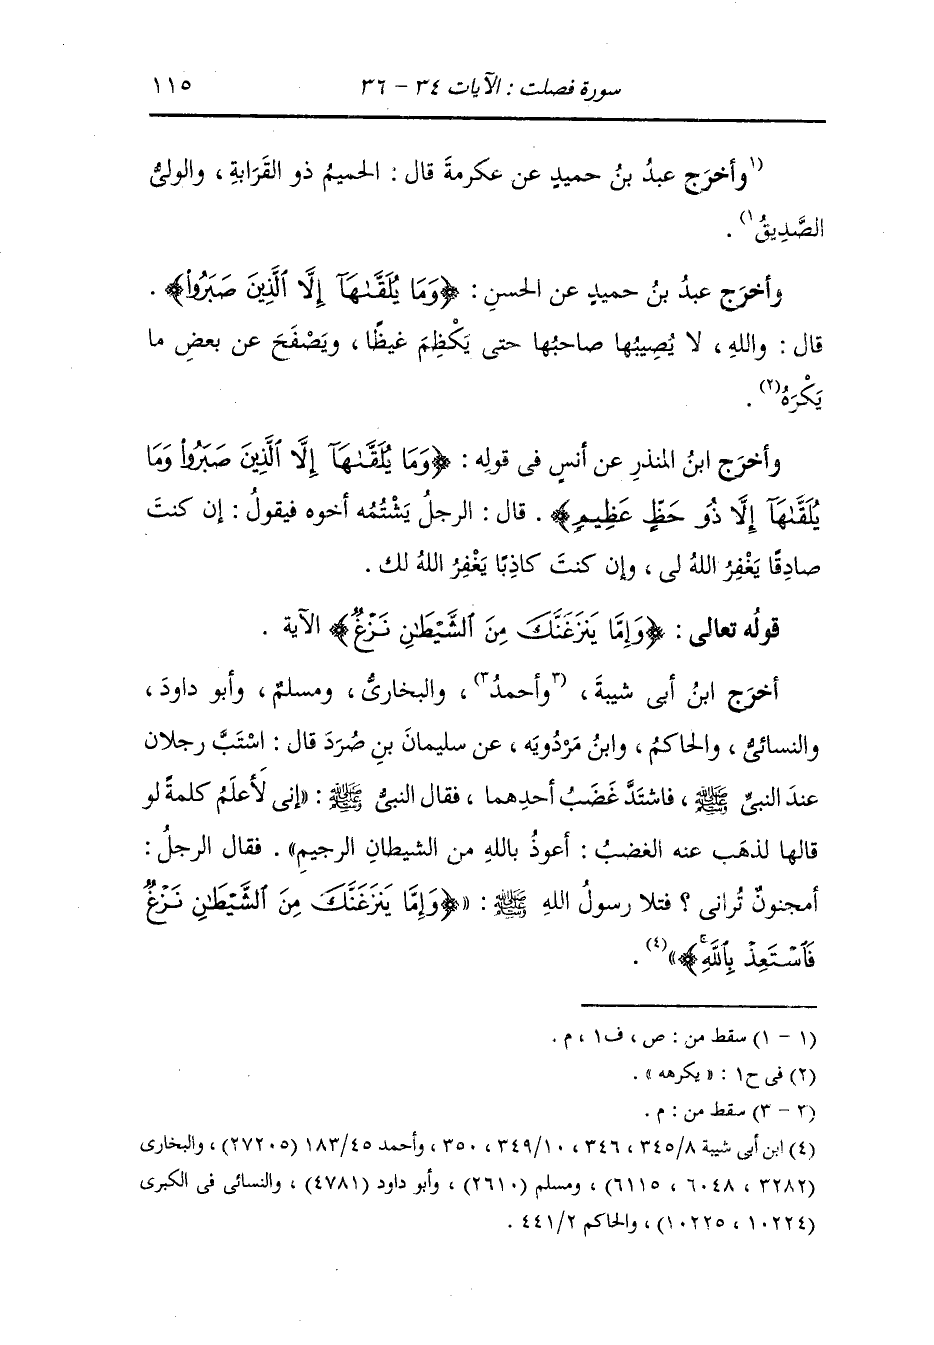 سورة فصلت : الآيات ٣٤ - ٣٦ ١١٥
(١وأخرَج عبدُ بنُ حميدٍ عن عكرمةَ قال : الحميمُ ذو القَرَابةِ ، والولىُّ
الصَّدِيقُ١) .
وأخرَج عبدُ بنُ حميدٍ عن الحسنِ : ﴿وَمَا يُلَقَّىٰهَآ إِلَّا ٱلَّذِينَ صَبَرُوا۟﴾ .
قال : واللهِ ، لا يُصِيبُها صاحبُها حتى يَكْظِمَ غيظًا ، ويَصْفَحَ عن بعضِ ما
يَكْرَهُ(٢) .
وأخرَج ابنُ المنذرِ عن أنسٍ فى قولِه : ﴿وَمَا يُلَقَّىٰهَآ إِلَّا ٱلَّذِينَ صَبَرُوا۟ وَمَا
يُلَقَّىٰهَآ إِلَّا ذُو حَظٍّ عَظِيمٍ﴾ . قال : الرجلُ يَشْتُمُه أخوه فيقولُ : إن كنتَ
صادِقًا يَغْفِرُ اللهُ لى ، وإن كنتَ كاذِبًا يَغْفِرُ اللهُ لك .
قولُه تعالى : ﴿وَإِمَّا يَنزَغَنَّكَ مِنَ ٱلشَّيْطَٰنِ نَزْغٌ﴾ الآية .
أخرَج ابنُ أبى شيبةَ ، (٣وأحمدُ٣) ، والبخارىُّ ، ومسلمٌ ، وأبو داودَ ،
والنسائىُّ ، والحاكمُ ، وابنُ مَرْدُويَه ، عن سليمانَ بنِ صُرَدَ قال : اسْتَبَّ رجلان
عندَ النبىِّ ﷺ ، فاشتَدَّ غَضَبُ أحدِهما ، فقال النبىُّ ﷺ : «إنى لَأعلَمُ كلمةً لو
قالها لذهَب عنه الغضبُ : أعوذُ باللهِ من الشيطانِ الرجيمِ» . فقال الرجلُ :
أمجنونٌ تُرانى ؟ فتلا رسولُ اللهِ ﷺ : «﴿وَإِمَّا يَنزَغَنَّكَ مِنَ ٱلشَّيْطَٰنِ نَزْغٌ
فَٱسْتَعِذْ بِٱللَّهِۚ﴾»(٤) .
(١ - ١) سقط من : ص ، ف١ ، م .
(٢) فى ح١ : « يكرهه » .
(٣ - ٣) سقط من : م .
(٤) ابن أبى شيبة ٣٤٥/٨ ، ٣٤٦ ، ٣٤٩/١٠ ، ٣٥٠ ، وأحمد ١٨٣/٤٥ (٢٧٢٠٥) ، والبخارى
(٣٢٨٢ ، ٦٠٤٨ ، ٦١١٥) ، ومسلم (٢٦١٠) ، وأبو داود (٤٧٨١) ، والنسائى فى الكبرى
(١٠٢٢٤ ، ١٠٢٢٥) ، والحاكم ٤٤١/٢ .